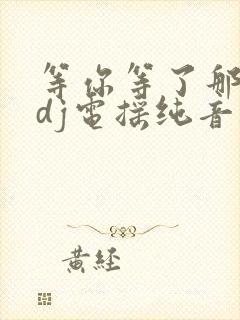 等你等了那
dj電摇纯音
黄经